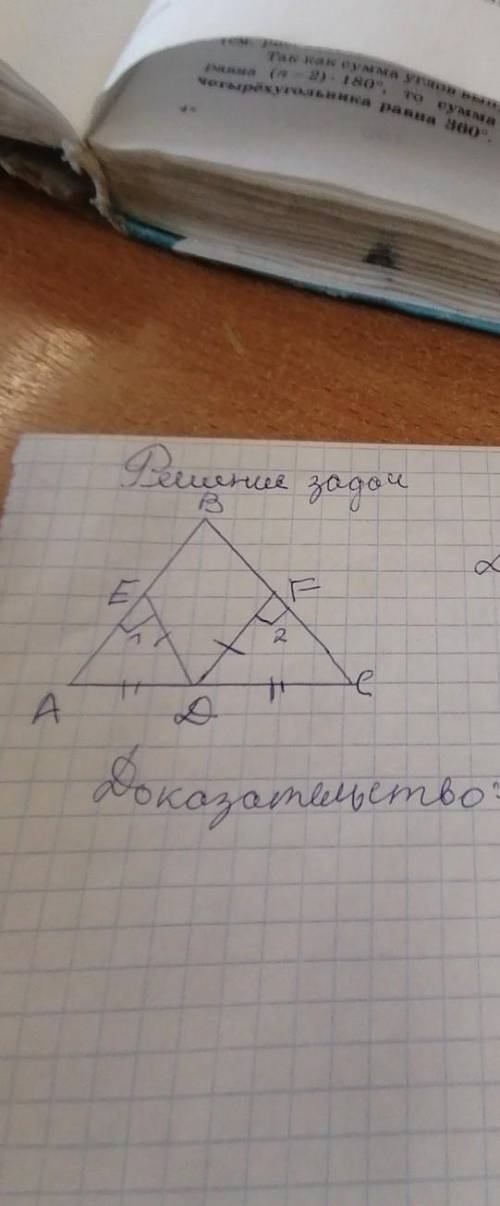 Так как сумма углов
равна (n − 2) · 180°, то сумма
четырёхугольника равна 360°.
4*
Решение задач
B
E F
1 2
A D C
Доказательство: